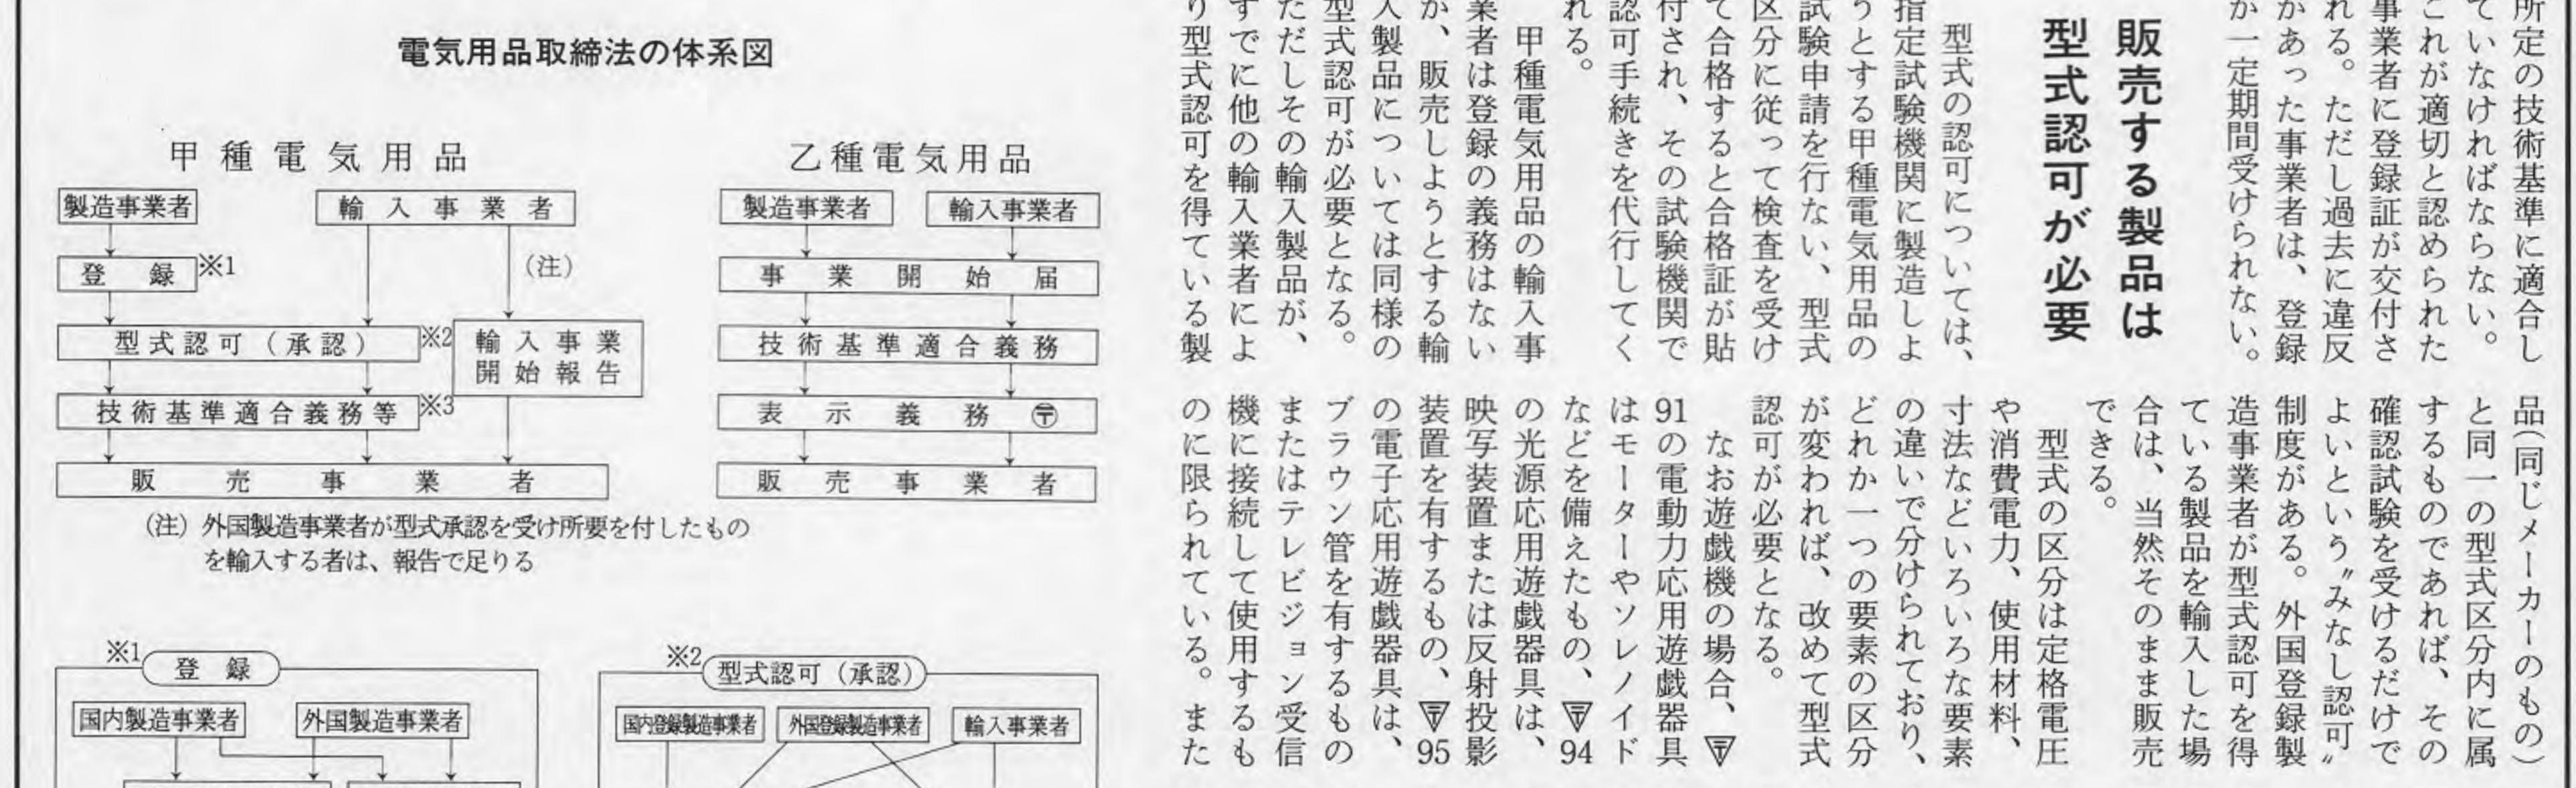 所定の技術基準に適合し
ていなければならない。
これが適切と認められた
事業者に登録証が交付さ
れる。ただし過去に違反
があった事業者は、登録
が一定期間受けられない。
販売する製品は
型式認可が必要
型式の認可については、
指定試験機関に製造しよ
うとする甲種電気用品の
試験申請を行ない、型式
区分に従って検査を受け
て合格すると合格証が貼
付され、その試験機関で
認可手続きを代行してく
れる。
甲種電気用品の輸入事
業者は登録の義務はない
が、販売しようとする輸
入製品については同様の
型式認可が必要となる。
ただしその輸入製品が、
すでに他の輸入業者によ
り型式認可を得ている製
品(同じメーカーのもの)
と同一の型式区分内に属
するものであれば、その
確認試験を受けるだけで
よいという〝みなし認可〟
制度がある。外国登録製
造事業者が型式認可を得
ている製品を輸入した場
合は、当然そのまま販売
できる。
型式の区分は定格電圧
や消費電力、使用材料、
寸法などいろいろな要素
の違いで分けられており、
どれか一つの要素の区分
が変われば、改めて型式
認可が必要となる。
なお遊戯機の場合、〒
91の電動力応用遊戯器具
はモーターやソレノイド
などを備えたもの、〒94
の光源応用遊戯器具は、
映写装置または反射投影
装置を有するもの、〒95
の電子応用遊戯器具は、
ブラウン管を有するもの
またはテレビジョン受信
機に接続して使用するも
のに限られている。また
電気用品取締法の体系図
甲種電気用品
製造事業者
輸入事業者
登録※1
(注)
型式認可(承認)※2
輸入事業
開始報告
技術基準適合義務等※3
販売事業者
乙種電気用品
製造事業者
輸入事業者
事業開始届
技術基準適合義務
表示義務 〶
販売事業者
(注) 外国製造事業者が型式承認を受け所要を付したもの
を輸入する者は、報告で足りる
※1 登録
国内製造事業者
外国製造事業者
※2 型式認可(承認)
国内登録製造事業者
外国登録製造事業者
輸入事業者